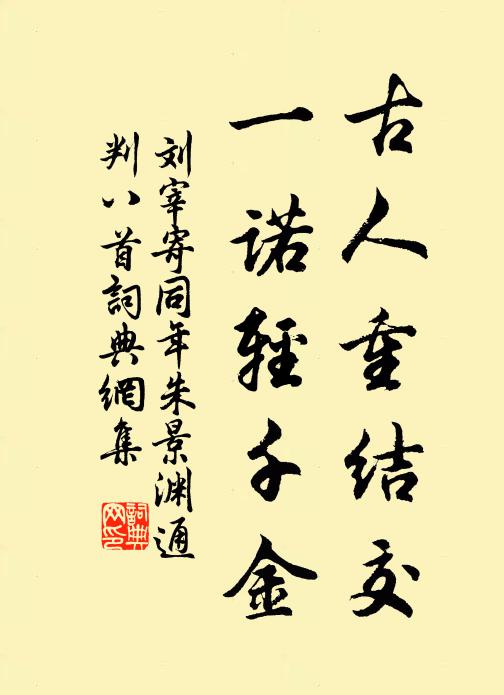 古人重结交
一诺轻千金
刘宰寄同年朱景渊通
判八首詞典網集
詞典
网印